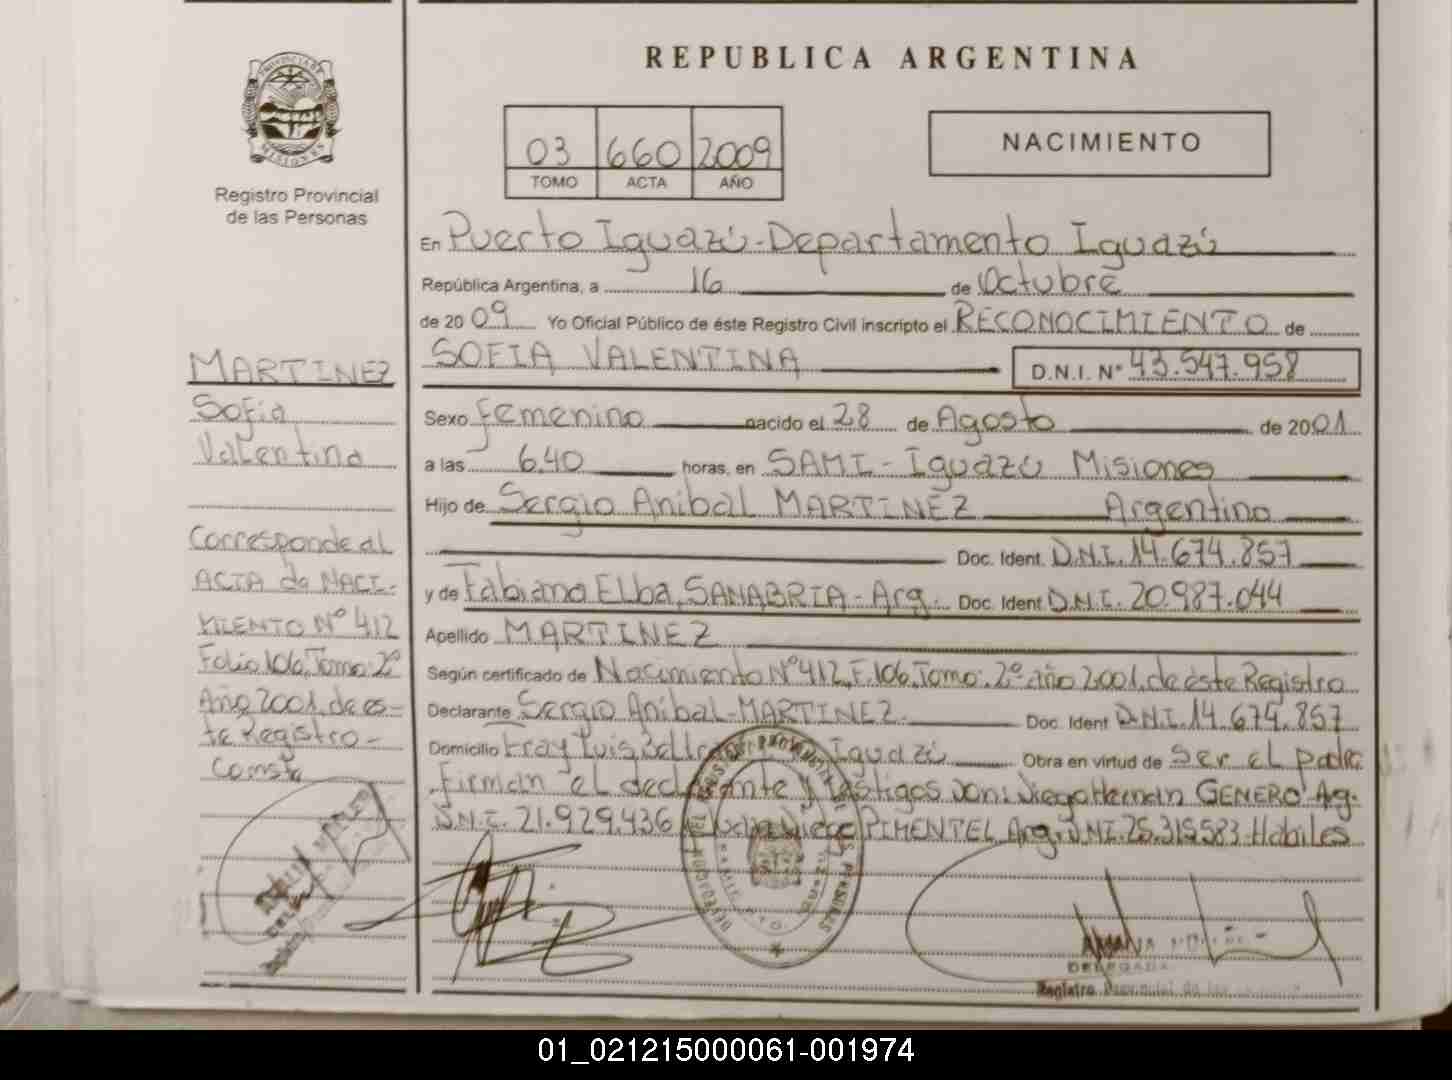 REPUBLICA ARGENTINA
Provincia de
MISIONES
Registro Provincial
de las Personas
03 660 2009
TOMO ACTA AÑO
NACIMIENTO
En Puerto Iguazú-Departamento Iguazú
República Argentina, a 16 de Octubre
de 2009 Yo Oficial Público de éste Registro Civil inscripto el RECONOCIMIENTO de
SOFIA VALENTINA D.N.I. Nº 43.547.958
Sexo femenino nacido el 28 de Agosto de 2001
a las 6,40 horas, en SAMI-Iguazú Misiones
Hijo de Sergio Anibal MARTINEZ Argentino
Doc. Ident. D.N.I. 14.674.857
y de Fabiana Elba, SANABRIA-Arg. Doc. Ident D.N.I. 20.987.044
Apellido MARTINEZ
Según certificado de Nacimiento Nº412, F.106, Tomo: 2º año 2001, de éste Registro
Declarante Sergio Anibal-MARTINEZ. Doc. Ident D.N.I. 14.674.857
Domicilio Fray Luis Iguazú Obra en virtud de Ser el padre
firman el declarante y testigos Don: Diego Hernan GENERO Arg.
D.N.I. 21.929.436 PIMENTEL Arg. D.N.I. 25.319.583 Habiles
MARTINEZ
Sofia
Valentina
Corresponde al
ACTA de NACI-
MIENTO Nº 412
Folio 106, Tomo: 2º
Año 2001, de es-
te Registro-
Conste
DELEGADA
Registro Provincial de las
01_021215000061-001974